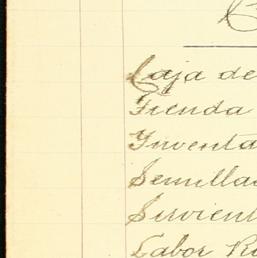 Caja de
Tienda
Inventa
Semilla
Sirvient
Labor R